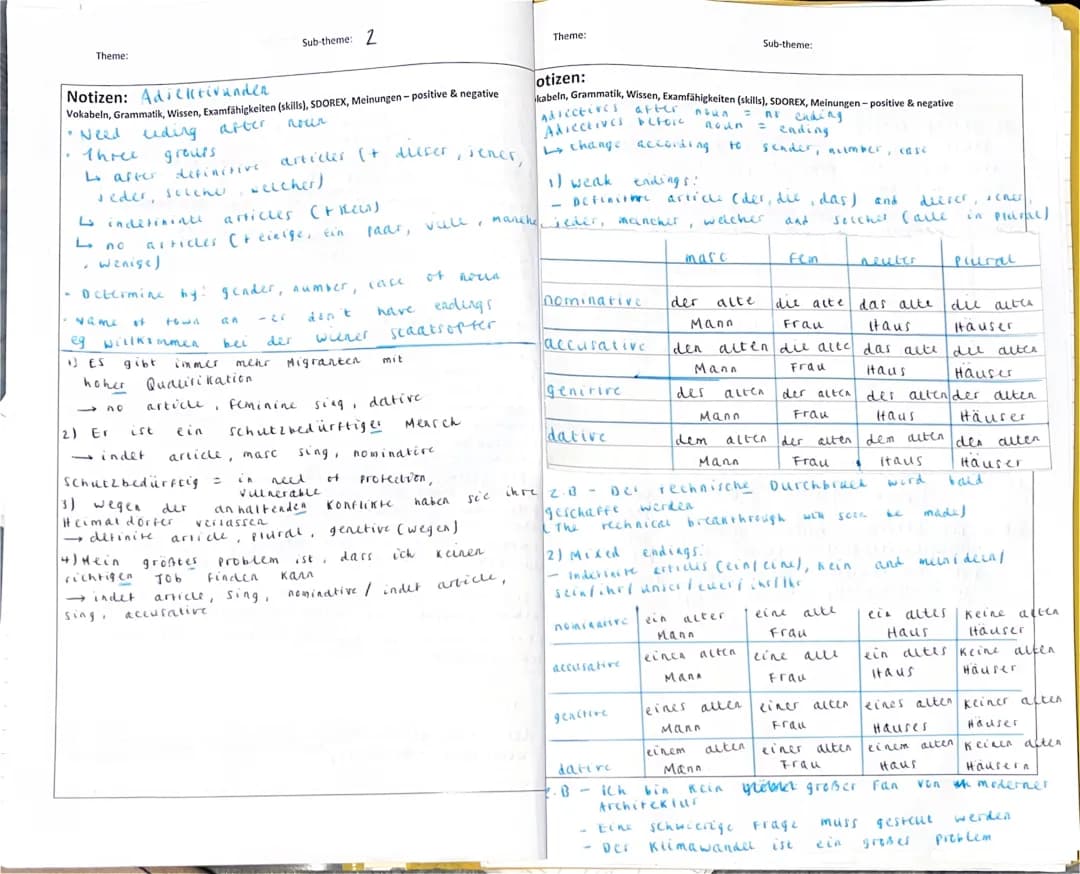 Theme:
Sub-theme: 2
Notizen: Adjektivenden
Vokabeln, Grammatik, Wissen, Examfähigkeiten (skills), SDOREX, Meinungen – positive & negative
• Need ending after noun
• Three groups
↳ after definitive articles (+ dieser, jener,
jeder, solcher, welcher)
↳ indefinite articles (+ kein)
↳ no articles (+ einige, ein paar, viele, manche
, wenige)
• Determine by: gender, number, case of noun
• Name of town an -er don't have endings
eg willkommen bei der wiener staatsopfer
1) Es gibt immer mehr Migranten mit
hoher Qualifikation
→ no article, feminine sing, dative
2) Er ist ein schutzbedürftiger Mensch
→ indef article, masc sing, nominative
Schutzbedürftig = in need of protection,
vulnerable
3) wegen der anhaltenden Konflikte haben sie ihre
Heimatdörfer verlassen
→ definite article, plural, genetive (wegen)
4) Mein größtes problem ist, dass ich keinen
richtigen Job finden kann
→ indef article, sing, nominative / indef article,
sing, accusative
Theme:
Sub-theme:
otizen:
kabeln, Grammatik, Wissen, Examfähigkeiten (skills), SDOREX, Meinungen – positive & negative
Adjectives after noun = no ending
Adjectives before noun = ending
↳ change according to gender, number, case
1) weak endings:
- Definitive article (der, die, das) and dieser, jener,
jeder, mancher, welcher and solcher (alle in plural)
masc fem neuter plural
nominative der alte die alte das alte die alten
Mann Frau Haus Häuser
accusative den alten die alte das alte die alten
Mann Frau Haus Häuser
genitive des alten der alten des alten der alten
Mann Frau Haus Häuser
dative dem alten der alten dem alten den alten
Mann Frau Haus Häuser
Z.B - Der technische Durchbruch wird bald
geschafft werden
(The technical breakthrough will soon be made)
2) Mixed endings:
- Indefinite articles (ein/eine), kein and mein/dein/
sein/ihr/unser/euer/ihr/Ihr
nominative ein alter eine alte ein altes keine alten
Mann Frau Haus Häuser
accusative einen alten eine alte ein altes keine alten
Mann Frau Haus Häuser
genitive eines alten einer alten eines alten keiner alten
Mann Frau Hauses Häuser
dative einem alten einer alten einem alten keinen alten
Mann Frau Haus Häusern
Z.B - ich bin kein großer Fan von moderner
Architektur
- Eine schwierige Frage muss gestellt werden
- Der Klimawandel ist ein großes Problem